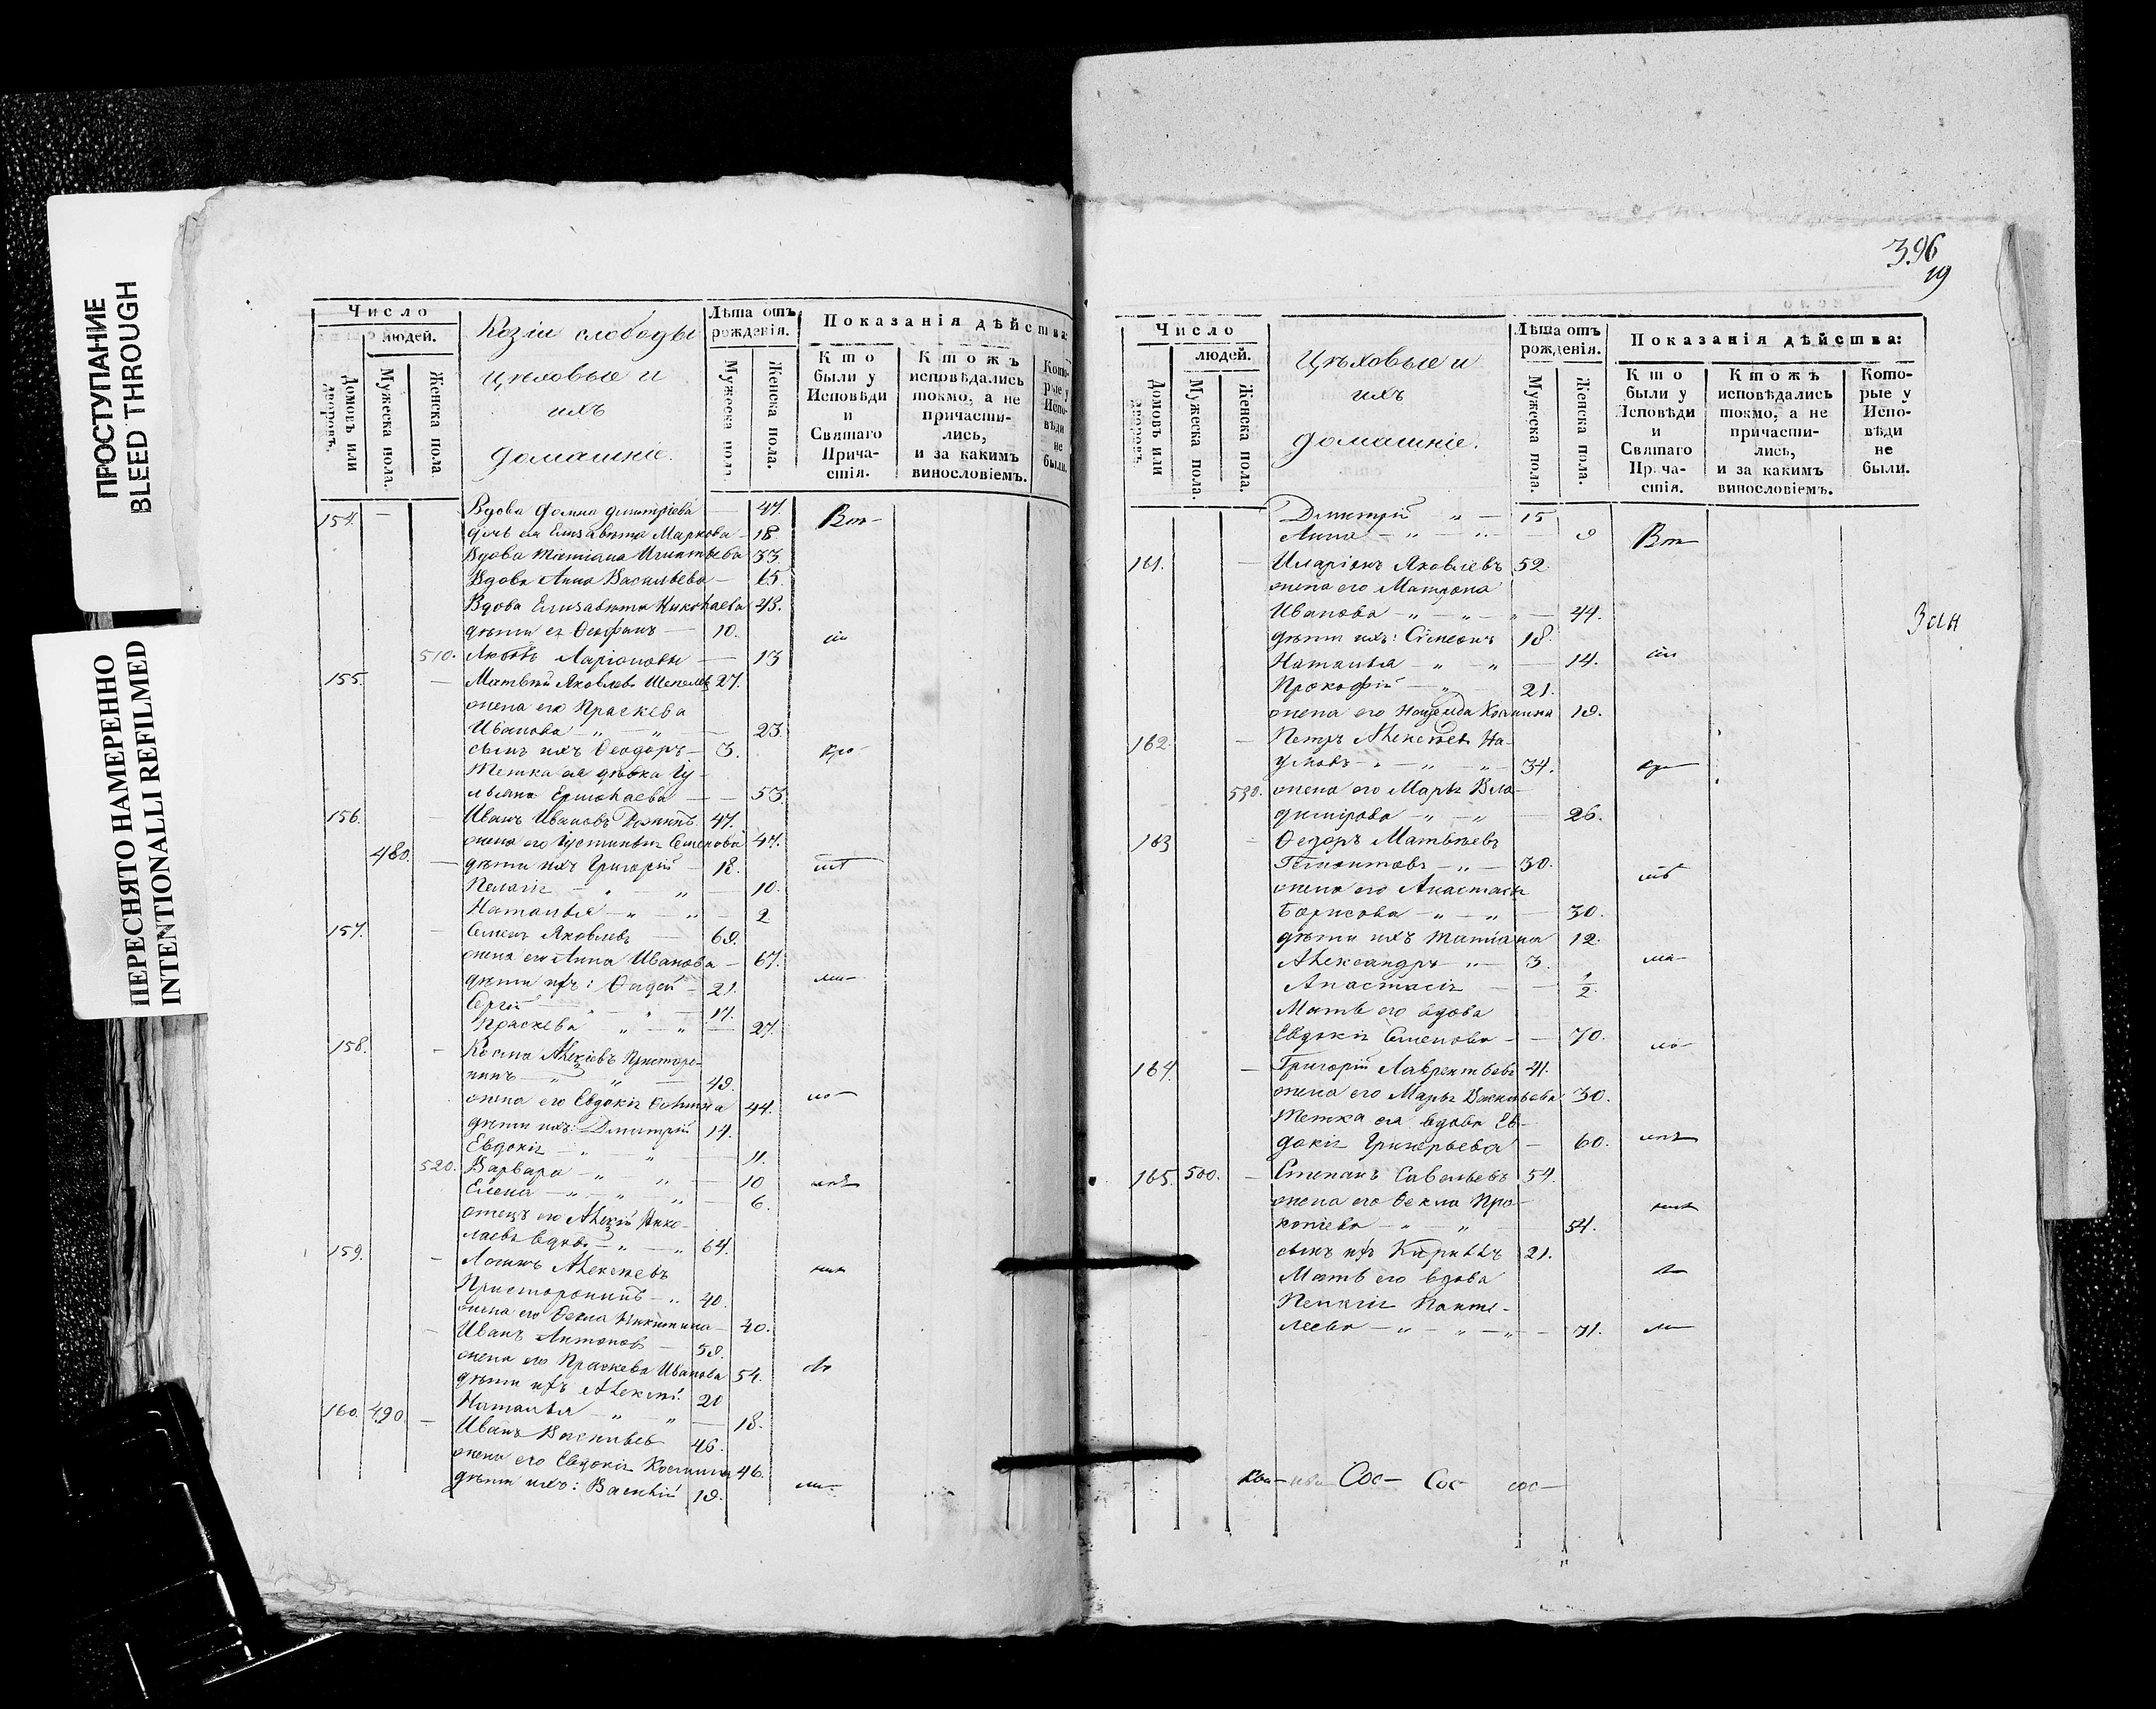 ПРОСТУПАНИЕ
BLEED THROUGH
ПЕРЕСНЯТО НАМЕРЕННО
INTENTIONALLI REFILMED
Число
людей.
Домовъ или дворовъ.
Мужеска пола.
Женска пола.
Козіи слободы
цѣховые и
ихъ
домашніе.
Лѣта отъ рожденія.
Мужеска пола.
Женска пола.
Показанія дѣйства:
Кто были у Исповѣди и Святаго Причастія.
Ктожъ исповѣдались токмо, а не причастились, и за какимъ винословіемъ.
Которые у Исповѣди не были.
154. Вдова Домна Димитріева 47. Вт-
дочь ея Елизавета Маркова 18.
Вдова Татіана Игнатьева 33.
Вдова Анна Васильева 65.
Вдова Елизавета Николаева 48.
дѣти ея Феофанъ 10.
510. Любовь Ларіонова 13
155. Матвѣй Яковлевъ Шепелевъ 27.
жена его Праскева
Иванова 23.
сынъ ихъ Феодоръ 3.
Тетка ея дѣвка Іу-
льяна Ермолаева 53.
156. Иванъ Ивановъ 47.
жена его Іустинья Семенова 47.
480. дѣти ихъ Григорій 18.
Пелагія 10.
Наталья 2
157. Семенъ Яковлевъ 69.
жена его Анна Иванова 67.
дѣти ихъ: 21.
Сергій 17.
Праскева 27.
158. Косма Алексіевъ Присторо-
нинъ 49.
жена его Евдокія 44.
дѣти ихъ: Дмитрій 14.
Евдокія 11.
520. Варвара 10
Елена 6.
отецъ его Алексій Нико-
лаевъ вдовъ 64.
159. Логинъ Алексѣевъ
Присторонинъ 40.
жена его Фекла Никитина 40.
Иванъ Антоновъ 59.
жена его Праскева Иванова 54.
дѣти ихъ Алексѣй 20
Наталья 18.
160. 490. Иванъ Васильевъ 46.
жена его Евдокія Космина 46.
дѣти ихъ: Василій 19.
396
19
Число
людей.
Домовъ или дворовъ.
Мужеска пола.
Женска пола.
Цѣховые и
ихъ
домашніе.
Лѣта отъ рожденія.
Мужеска пола.
Женска пола.
Показанія дѣйства:
Кто были у Исповѣди и Святаго Причастія.
Ктожъ исповѣдались токмо, а не причастились, и за какимъ винословіемъ.
Которые у Исповѣди не были.
Дмитрій 15
Анна 9 Вт-
161. Иларіонъ Яковлевъ 52.
жена его Матрона
Иванова 44.
дѣти ихъ: Сімеонъ 18.
Наталья 14.
Прокофій 21.
жена его Надежда Космина 19.
162. Петръ Алексѣевъ На-
умовъ 34.
530. жена его Марья Вла-
димірова 26.
163 Феодоръ Матвѣевъ
30.
жена его Анастасія
Борисова 30.
дѣти ихъ Татіана 12.
Александръ 3.
Анастасія 1/2.
Мать его вдова
Евдокія Семенова 70.
164. Григорій Лаврентьевъ 41.
жена его Марья Васильева 30.
Тетка ея вдова Ев-
докія Григорьева 60.
165. 500. Степанъ Савельевъ 54.
жена его Фекла Про-
копіева 54.
сынъ ихъ Кириллъ 21.
Мать его вдова
Пелагія Панте-
леева 71.
Сос- Сос- сос-